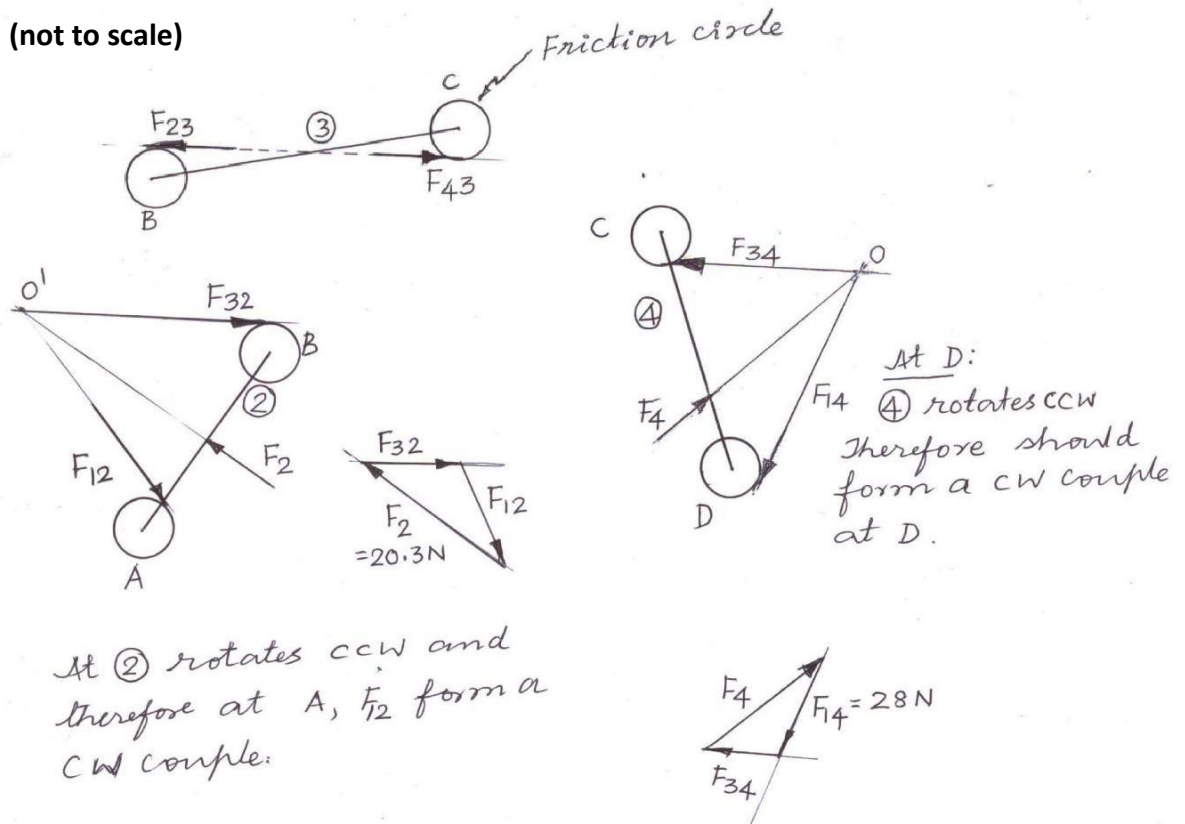 (not to scale)
Friction circle
C
F23
③
F43
B
O'
F32
B
②
F12
F2
A
F32
F12
F2
=20.3N
C
F34
O
④
F4
F14
D
At D:
④ rotates ccw
Therefore should
form a cw couple
at D.
At ② rotates ccw and
therefore at A, F12 form a
cw couple.
F4
F14 = 28N
F34